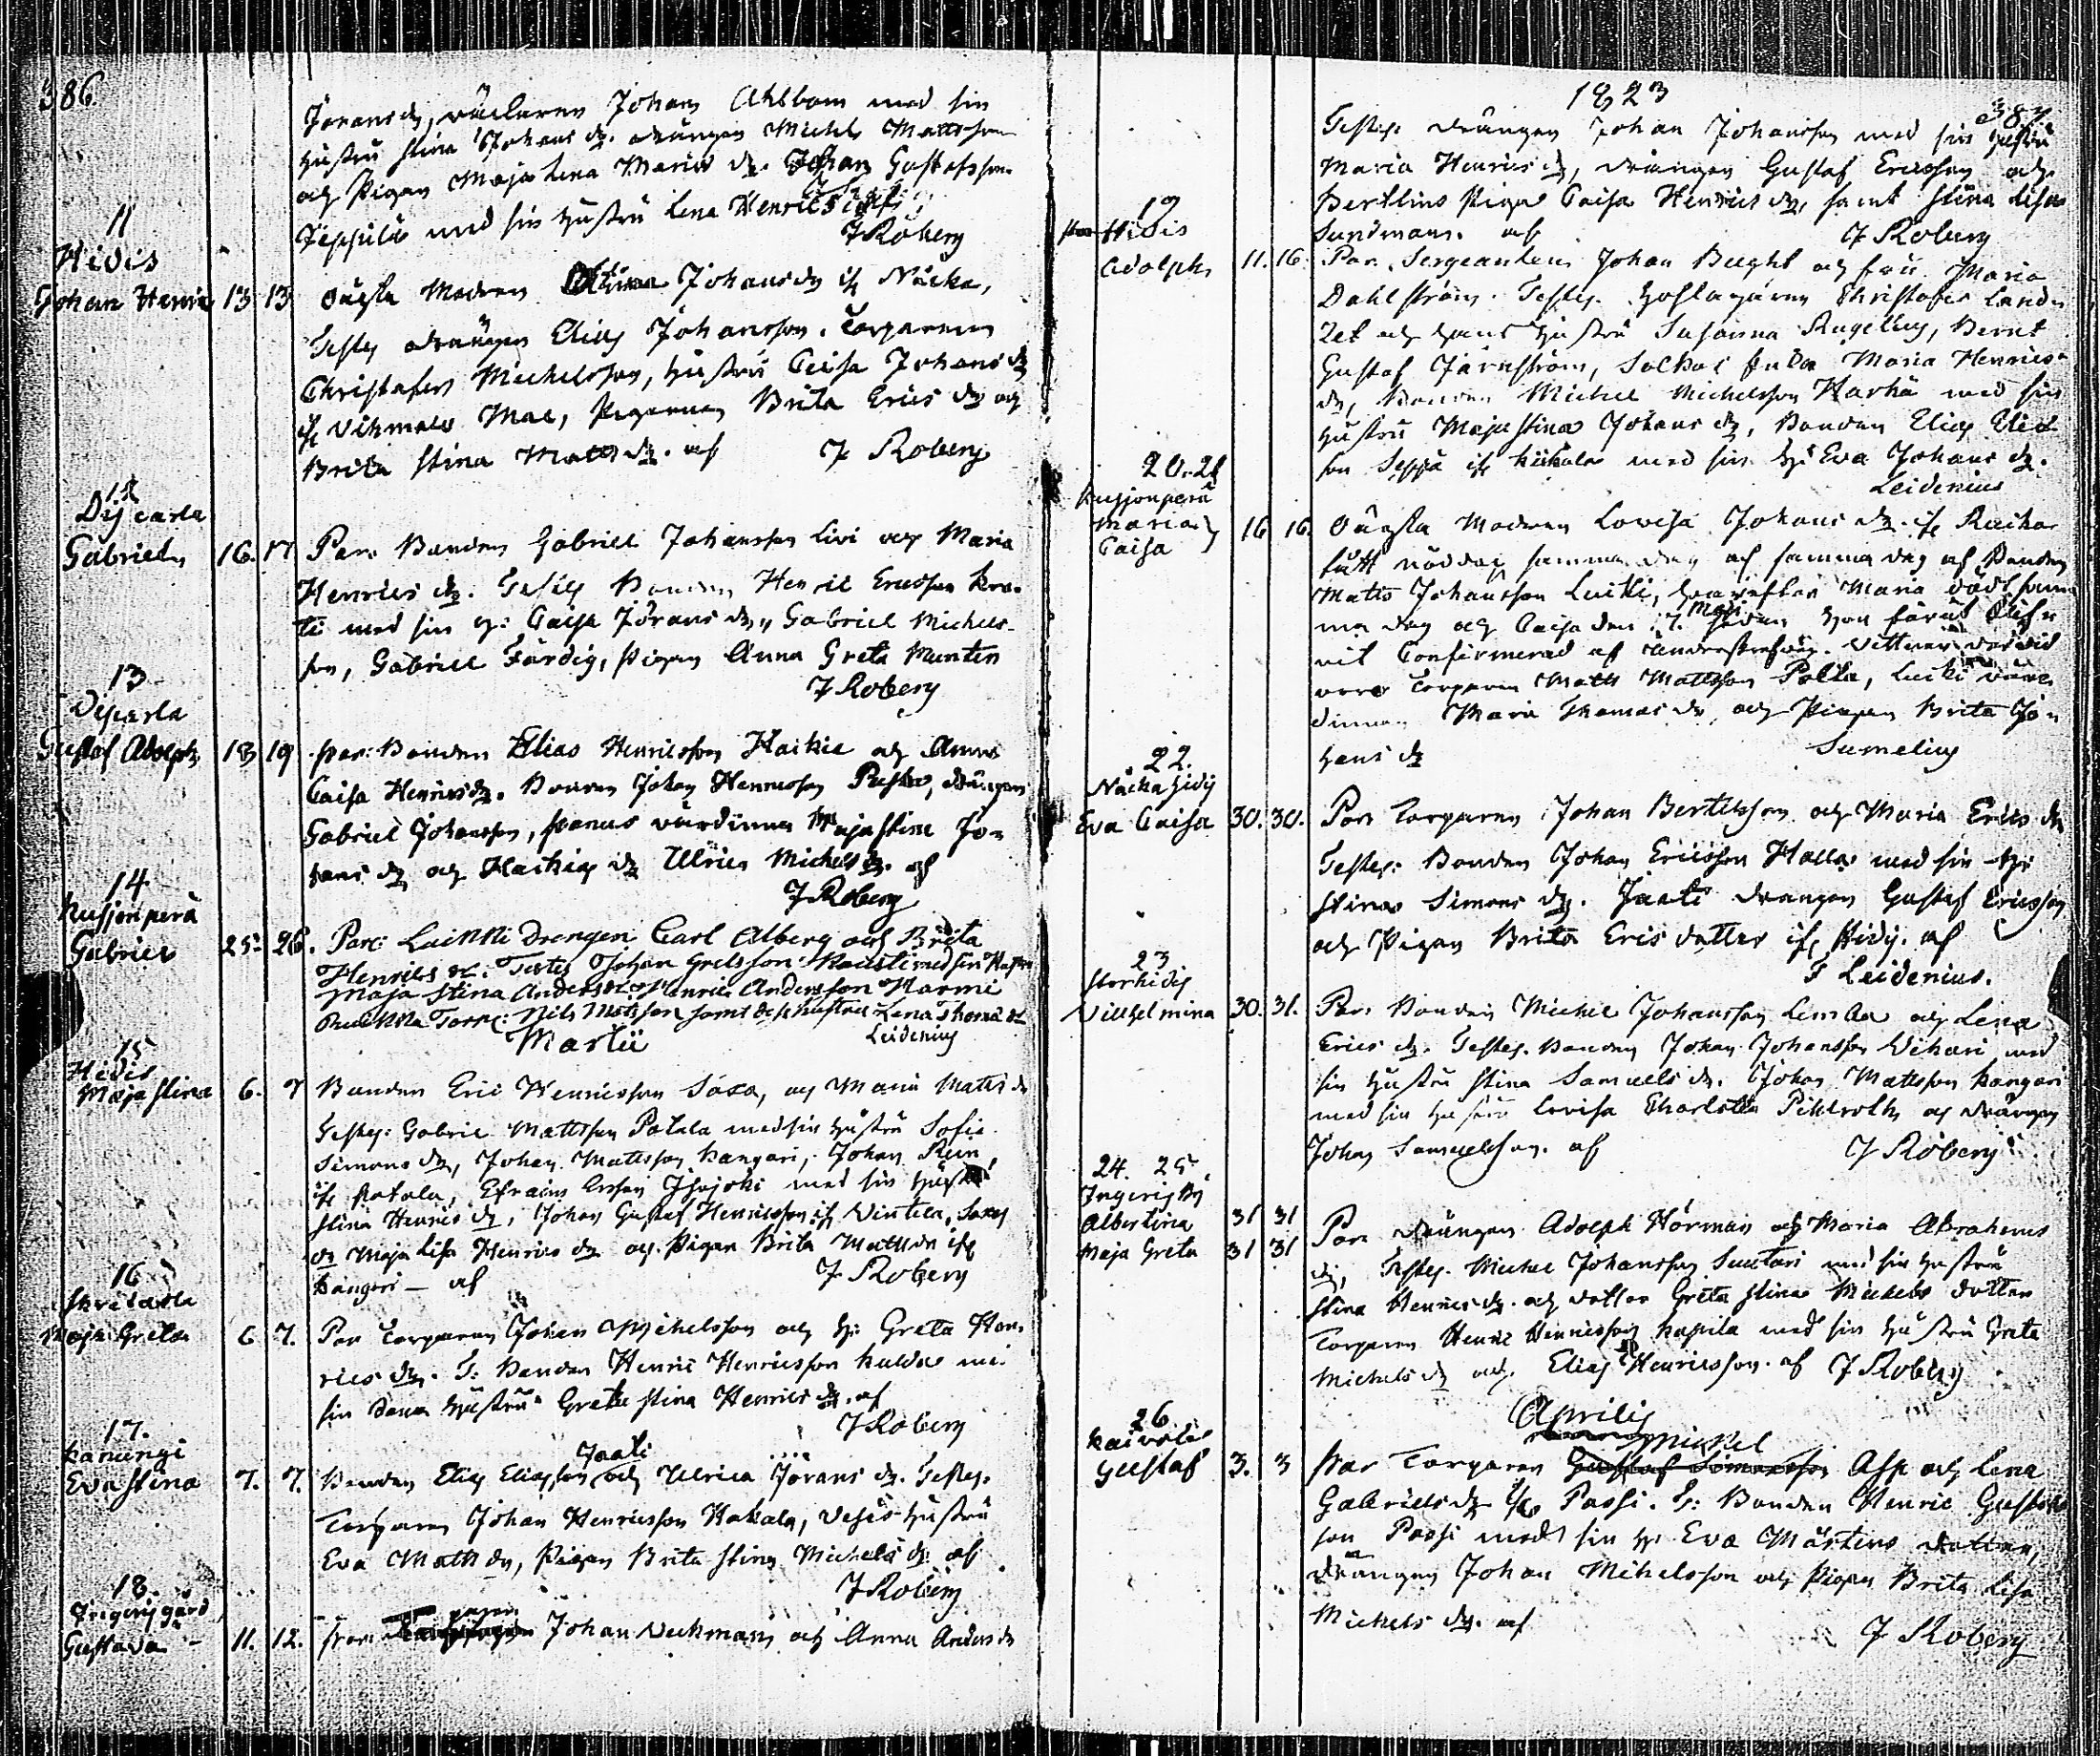 386
Jörans dr, väfvaren Johan Ahlbom med sin
hustru Stina Johans dr. drängen Michel Mattsson
och Pigan Maja Lena Maria dr. Johan Gustafsson
Jeppilä med sin hustru Lena Henrics dr af
J Roberg
11
Hidis
Johan Henric 13 13 oägta Modren Johans dr if. Näcka,
Testes drängen Elias Johansson. Torparen
Christofer Michelsson, hustru Caisa Johans dr
if. Vihmalo Mac, Pigorna Brita Erics dr och
Brita Stina Matts dr. af J Roberg
12
Gabriel 16. 17 Par. Bonden Gabriel Johansson Livi och Maria
Henrics dr. Testes Bonden Henric Ericsson
med sin h: Caisa Jörans dr, Gabriel Michels-
son, Gabriel Färdig, Pigan Anna Greta Munter
J Roberg
13
Gustaf Adolph 18 19 Par: Bonden Elias Henricsson Haikie och Anna
Caisa Henrics dr. Bonden Johan Henricsson drängen
Gabriel Johansson, värdinna Maja Stina Jo-
hans dr och Haikis dr Ulrica Michels dr. af
J Roberg
14
Kusjonperä
Gabriel 25 26. Par: Luikki Drengen Carl Alberg och Brita
Henrics dr: Testes Johan Grelsson med sin Hustru
Maja Stina Anders dr Henric Andersson Harmi
Torp: Nils Matsson samt dess hustru Lena Thomæ dr
Leidenius
Martii
15
Hidis
Maja Stina 6. 7 Bonden Eric Henricsson Saxa, och Maria Matts dr
Testes: Gabriel Mattsson Patala med sin hustru Sofia
Simons dr, Johan Mattsson Kangari, Johan
if. Patala, Efraim Ersson med sin hustru
Stina Henrics dr, Johan Gustaf Henricsson if. Vintela, Saxas
dr Maja Lisa Henrics dr och Pigan Brita Matts dr if.
Kangari – af J Roberg
16
Maja Greta 6 7. Par Torparen Johan Michelsson och h: Greta Hen-
rics dr. T: Bonden Henric Henricsson med
sin hustru Greta Stina Henrics dr. af
J Roberg
17.
Kanungi
Jaati
Eva Stina 7. 7. Bonden Elias Eliasson och Ulrica Jörans dr. Testes.
Torparen Johan Henricsson Hakala, hustru
Eva Matts dr, Pigan Brita Stina Michels dr af
J Roberg
18.
Gustava 11. 12. Johan Veckman och Anna Anders dr
1823
387
Testes: drängen Johan Johansson med sin hustru
Maria Henrics dr, drängen Gustaf Ericsson och
Bertlins Piga Caisa Henrics dr, samt Stina Lisa
Sundman. af J Roberg
19
Stor Hidis
Adolph 11. 16. Par. Sergeanten Johan Bught och fru Maria
Dahlström. Testes. Christofer Land-
zet och hans hustru Susanna Rugelius, Bernt
Gustaf Järnström, Enka Maria Henrics
dr, Bonden Michel Michelsson Harhä med sin
hustru Maja Stina Johans dr, Bonden Elias Elias
son Seppä if. Kukala med sin h: Eva Johans dr.
Leidenius
20. 21
Kusjonperä
Maria
Caisa } 16 16. Oägta Modren Lovisa Johans dr. if.
fått nöddop samma dag af Bonden
Matts Johansson Luikki, hvarefter Maria dödt sam-
ma dag och Caisa den 7. Maji
vit Confirmerad af Vittnen dervid
voro Torparen Matts Mattsson Palta, Luikki värd-
innan Maria Thomas dr, och Pigan Brita Jo-
hans dr Sumelius
22.
Näckahidis
Eva Caisa 30. 30. Par Torparen Johan Bertilsson och Maria Erics dr
Testes: Bonden Johan Ericsson Halla med sin h:
Stina Simons dr. Jaati drängen Gustaf Ericsson
och Pigan Brita Eris dotter if. Hidis. af
F Leidenius.
23
Storhidis
Vilhelmina 30. 31. Par. Bonden Michel Johansson Lemba och Lena
Erics dr. Testes. Bonden Johan Johansson Vihari med
sin hustru Stina Samuels dr. Johan Mattsson Kangari
med sin hustru Lovisa Charlotta Pihlroth, och drängen
Johan Samuelsson. af J Roberg
24. 25
Ingeris By
Albertina 31 31
Maja Greta 31 31 Par drängen Adolph Hörman och Maria Abrahams
dr, Testes. Michel Johansson Suutari med sin hustru
Stina Henrics dr. och dotter Greta Stina Michels dotter
Torparen Henric Henricsson Kapila med sin hustru Greta
Michels dr och Elias Henricsson. af J Roberg
Aprilis
26
Michel
Gustaf 3. 3 Par Torparen Gustaf Simonsson Asp och Lena
Gabriels dr if. Passi. T: Bonden Henric Gustafs
son Passi med sin h: Eva Mårtens dotter,
drängen Johan Mihelsson och Pigan Brita Lisa
Michels dr. af J Roberg